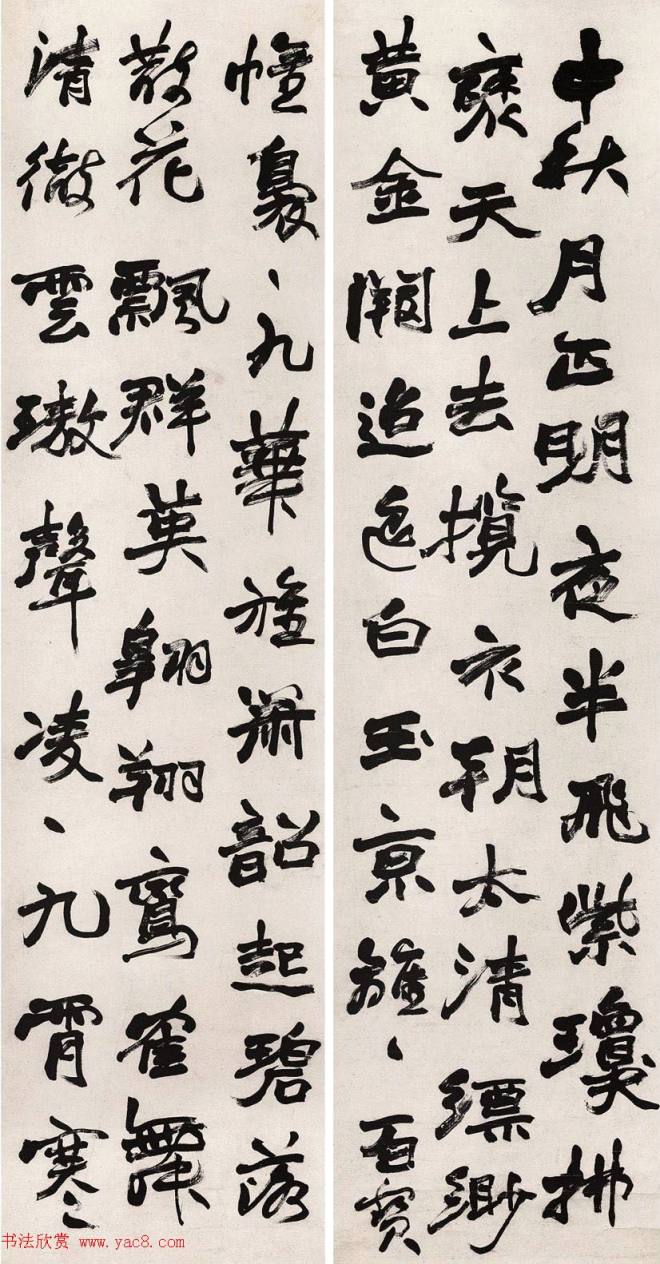 中秋月正明夜半飛紫瓊拂
衷天上去攬衣朝太清縹緲
黃金闕迢遙白玉京雝、百寶
幢裊、九華旌簫韶起碧落
散花飄群英翱翔鸞雀舞
清徹雲璈聲凌、九霄寒
书法欣赏 www.yac8.com